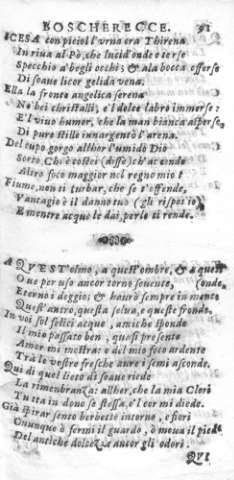 BOSCHERECCE. 91
SCESA con pie ici l'urna era Thirena
In riua al Pò, che lucid'onde o terse
Specchio a begli occhi; & ala bocca offerse
Di soaue licor gelida vena.
Ella la fronte angelica serena
Ne bei christalli, e'l dolce labro immerse:
E'l viuo humor, che la man bianca asperse,
Di puro stille innargentò l'arena.
Del cupo gorgo alhor l'umido Dio
Sorto. Che è costei (disse) ch'accende
Altro foco maggior nel regno mio?
Fiume, non ti turbar, che se t'offende,
Vantagio è il danno tuo (gli rispos'io)
E mentre acque le dai, perle ti rende.
A QVEST'olmo, a quest'ombre, & a quest'
Oue per uso ancor torno souente, (onde,
Eterno i deggio; & haurò sempre in mente
Quest'antro, questa selua, e queste fronde.
In voi sol felici acque, amiche sponde
Il mio passato ben, quasi presente
Amor mi mostra: e del mio foco ardente
Tra le vostre fresche aure i semi asconde.
Qui di quel lieto dì soaue riede
La rimembranza: allhor, che la mia Cleri
Tutta in dono se stessa, e'l cor mi diede.
Già spirar sento herbette intorno, e fiori
Oununque o fermi il guardo, o moua il piede
Del antiche dolcezze ancor gli odori.
QVI